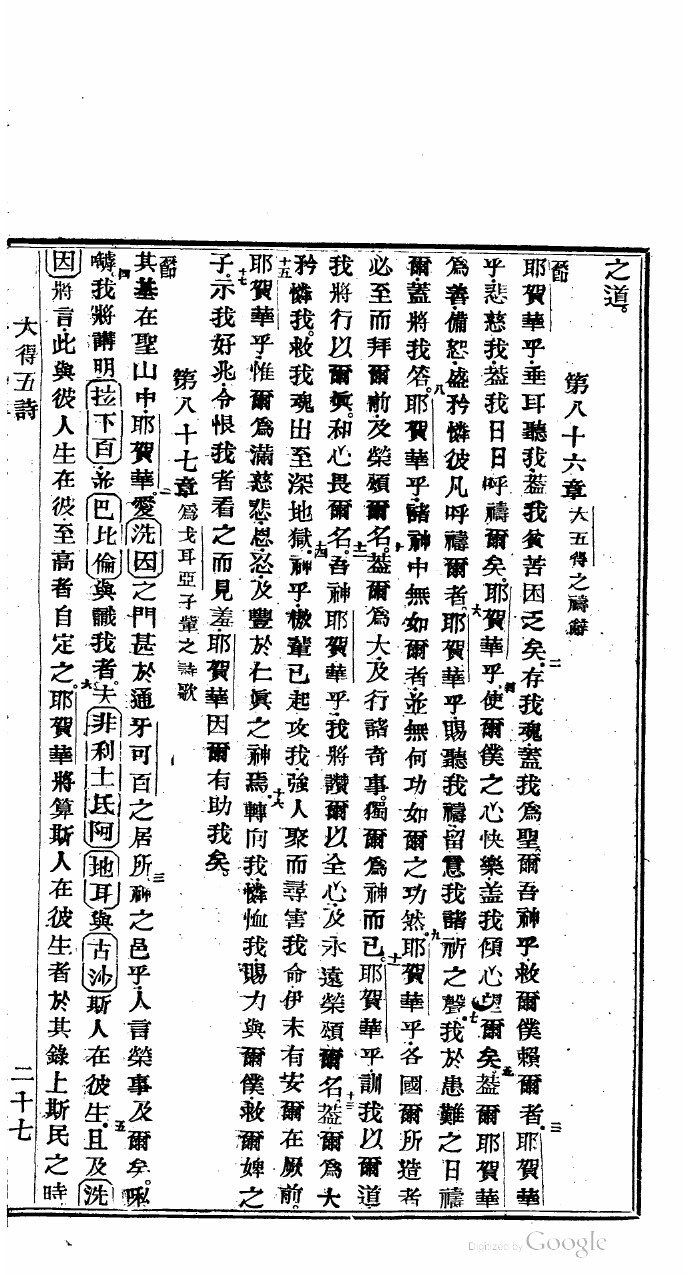 之道。
第八十六章 大五得之禱辭
節耶賀華乎、垂耳聽我、蓋我貧苦困乏矣。二存我魂、蓋我爲聖。爾吾神乎、救爾僕賴爾者。三耶賀華
乎、悲慈我、蓋我日日呼禱爾矣。耶賀華乎、四使爾僕之心快樂、蓋我傾心望爾矣。五蓋爾耶賀華
爲善、備恕、盛矜憐彼凡呼禱爾者。六耶賀華乎、賜聽我禱、留意我諸祈之聲。七我於患難之日禱
爾、蓋將我答。八耶賀華乎、諸神中無如爾者、並無何功如爾之功然。九耶賀華乎、各國爾所造者
必至而拜爾前、及榮頌爾名。十蓋爾爲大、及行諸奇事、獨爾爲神而已。十一耶賀華乎、訓我以爾道、
我將行以爾眞。和心畏爾名。十二吾神耶賀華乎、我將讚爾以全心、及永遠榮頌爾名。十三蓋爾爲大
矜憐我、救我魂出至深地獄。十四神乎、傲輩已起攻我、強人聚而尋害我命、伊未有安爾在厥前。
十五耶賀華乎、惟爾爲滿慈悲、恩忍、及豐於仁眞之神焉。十六轉向我、憐恤我、賜力與爾僕、救爾婢之
子。十七示我好兆、令恨我者看之而見羞、耶賀華因爾有助我矣。
第八十七章 爲戈耳亞子輩之詩歌
節其基在聖山中、二耶賀華愛洗因之門甚於通牙可百之居所。三神之邑乎、人言榮事及爾矣。㗭
嚹。四我將講明拉下百並巴比倫與識我者。夫非利士氐阿地耳與古沙、斯人在彼生。五且及洗
因將言、此與彼人生在彼、至高者自定之。六耶賀華將算斯人在彼生者、於其錄上斯民之時
大得五詩
二十七
Digitized by Google